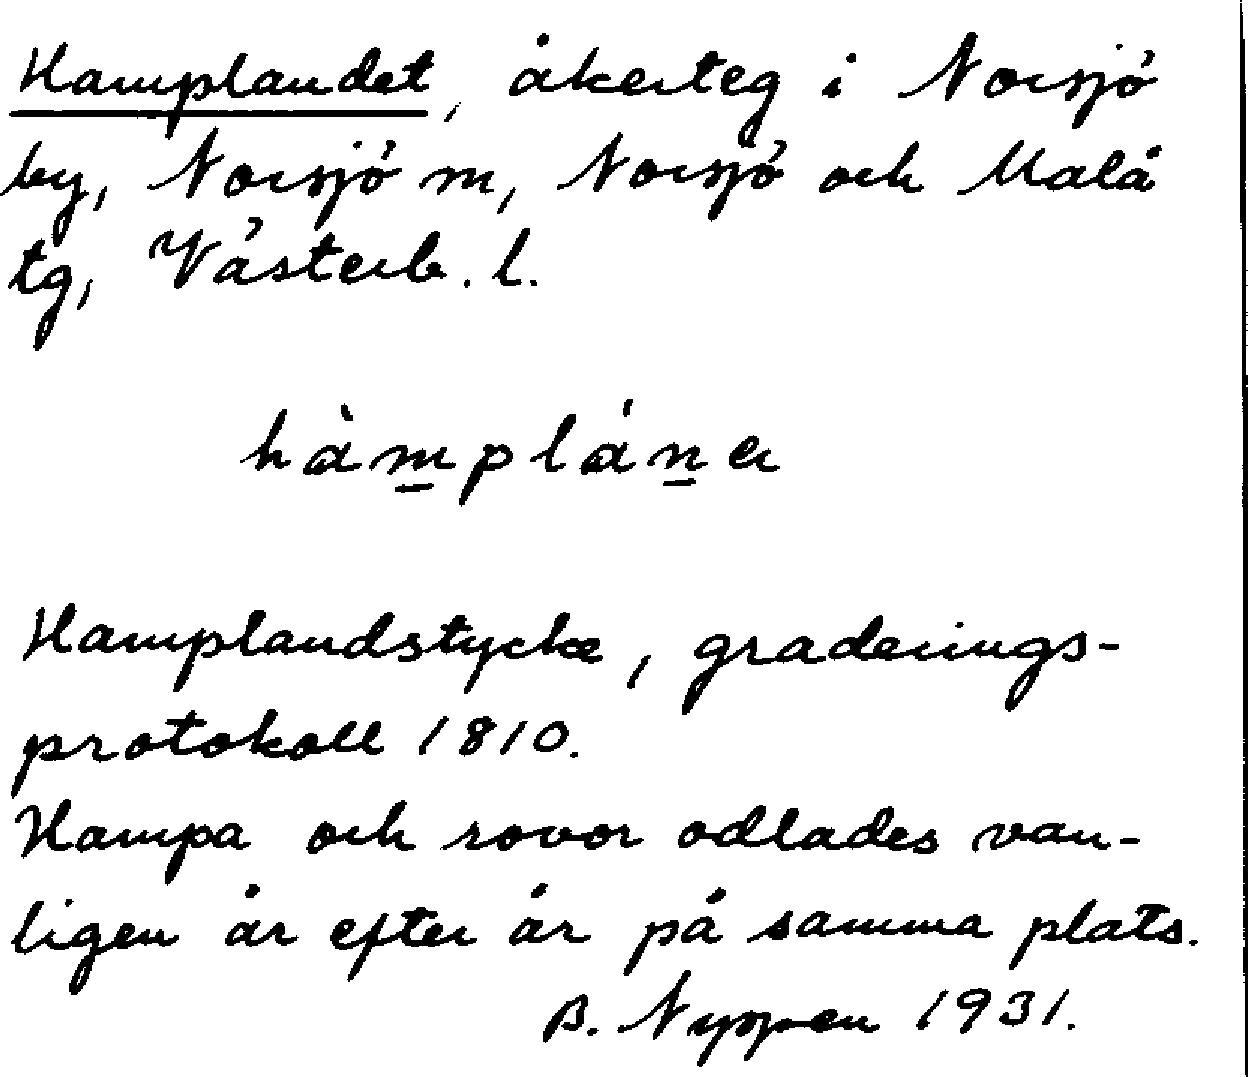 Hamplandet, åkerteg i Norsjö
by, Norsjö m, Norsjö och Malå
tg, Västerb. l.
hàm̱pláṉa
Hamplandstycke, graderings-
protokoll 1810.
Hampa och rovor odlades van-
ligen år efter år på samma plats.
B. Nyppen 1931.